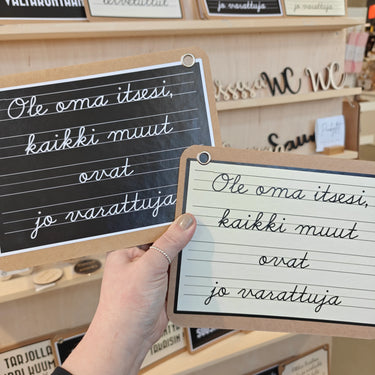 VALTAKUNTAAN
tervetullut
jo varattuja
jo varattuja
WC
WC
Ole oma itsesi,
kaikki muut
ovat
jo varattuja
Ole oma itsesi,
kaikki muut
ovat
jo varattuja
TARJOLLA